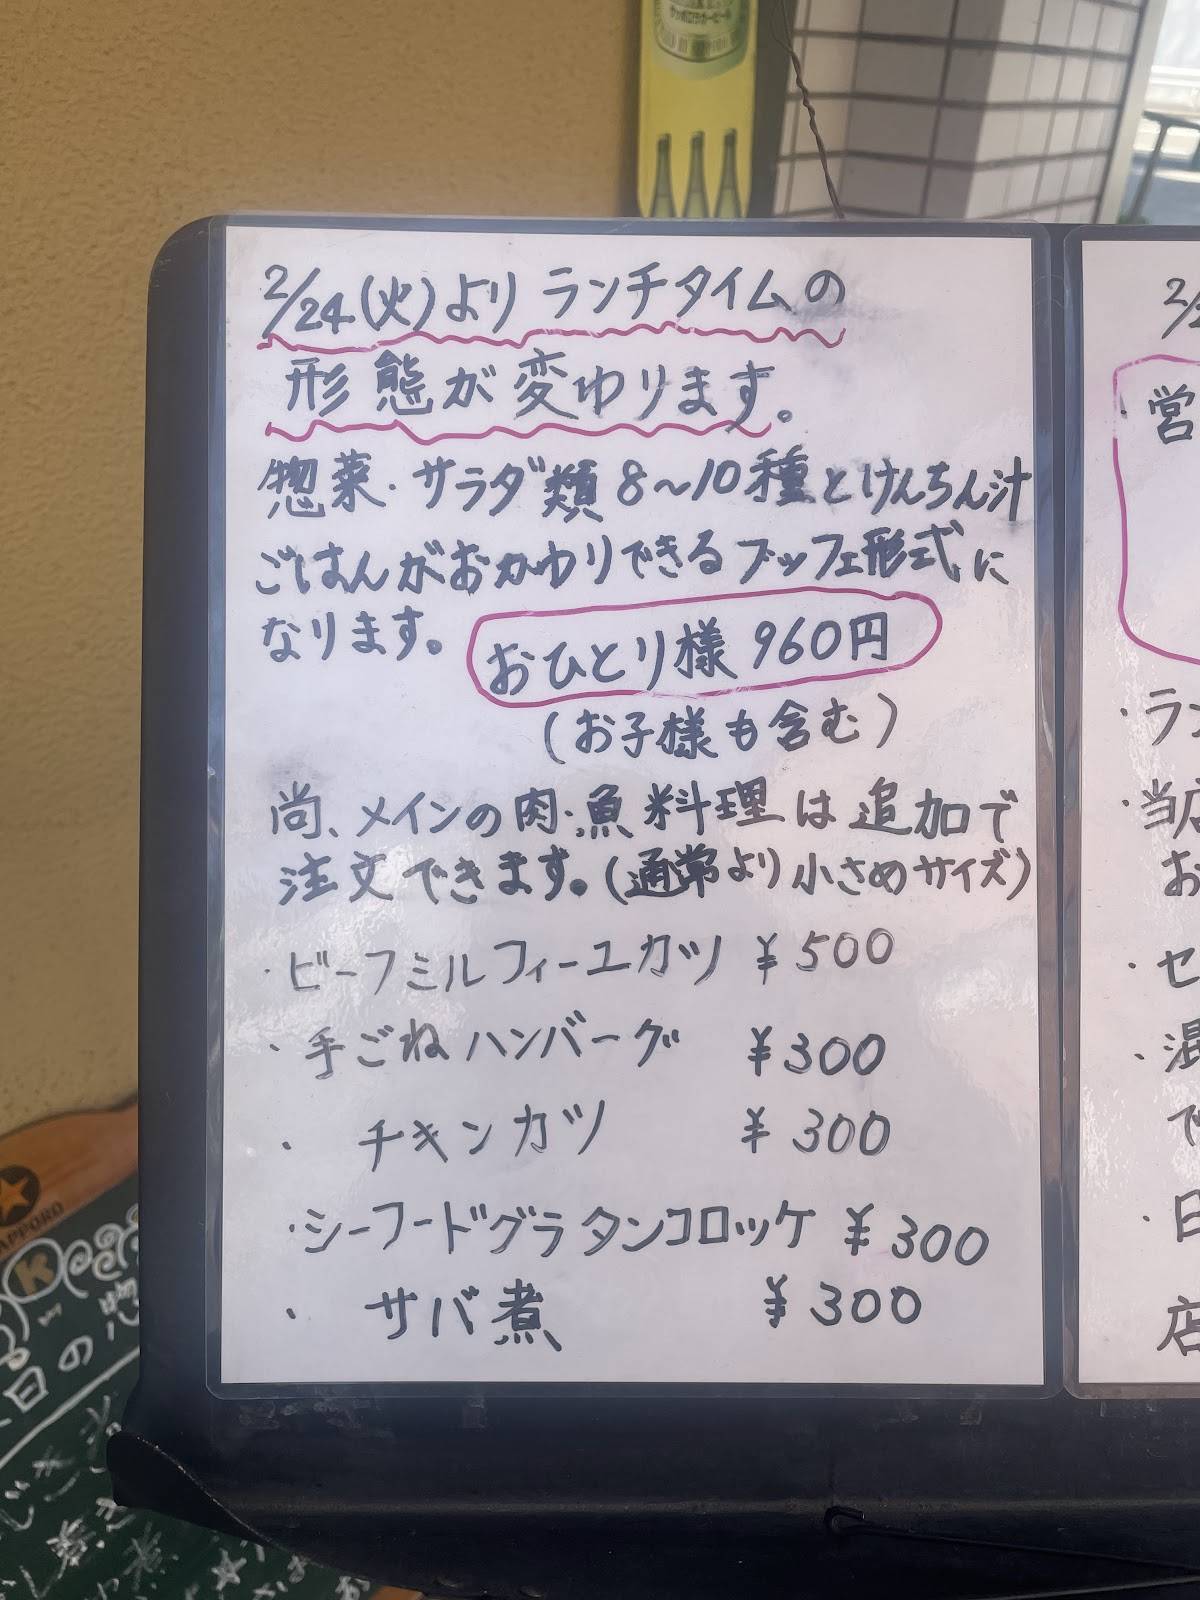 2/24(火)より ランチタイムの
形態が変わります。
惣菜・サラダ類8〜10種とけんちん汁
ごはんがおかわりできるブッフェ形式に
なります。 おひとり様 960円
(お子様も含む)
尚、メインの肉・魚料理は追加で
注文できます。(通常より小さめサイズ)
・ビーフミルフィーユカツ ¥500
・手ごねハンバーグ ¥300
・ チキンカツ ¥300
・シーフードグラタンコロッケ ¥300
・ サバ煮 ¥300
2/
営
・ラン
・当店
お
・セ
・混
で
・日
店
SAPPORO
K
日の